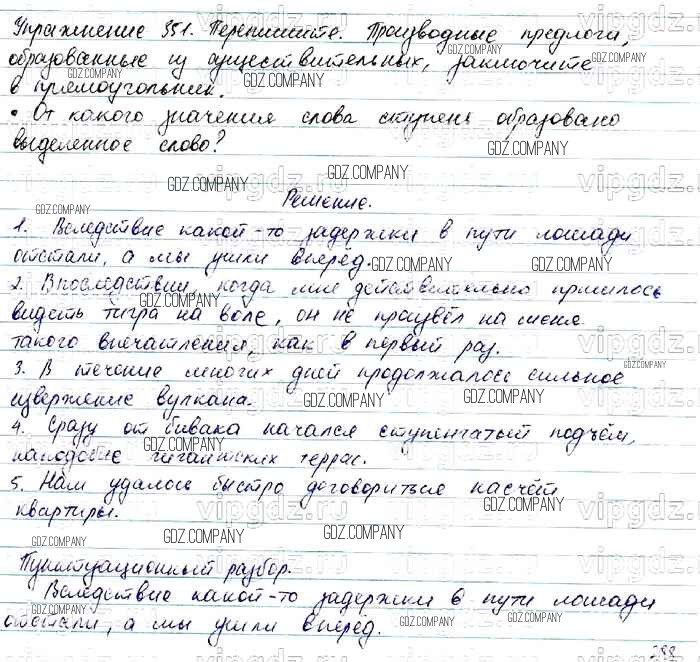 Упражнение 351. Перепишите. Производные предлоги,
образованные из существительных, заключите
в прямоугольник.
• От какого значения слова ступень образовано
выделенное слово?
Решение.
1. Вследствие какой-то задержки в пути лошади
отстали, а мы ушли вперёд.
2. Впоследствии, когда мне действительно пришлось
видеть тигра на воле, он не произвёл на меня
такого впечатления, как в первый раз.
3. В течение многих дней продолжалось сильное
извержение вулкана.
4. Сразу от бивака начался ступенчатый подъём,
наподобие гигантских террас.
5. Нам удалось быстро договориться насчёт
квартиры.
Пунктуационный разбор.
Вследствие какой-то задержки в пути лошади
отстали, а мы ушли вперёд.
288
GDZ.COMPANY
vipgdz.ru